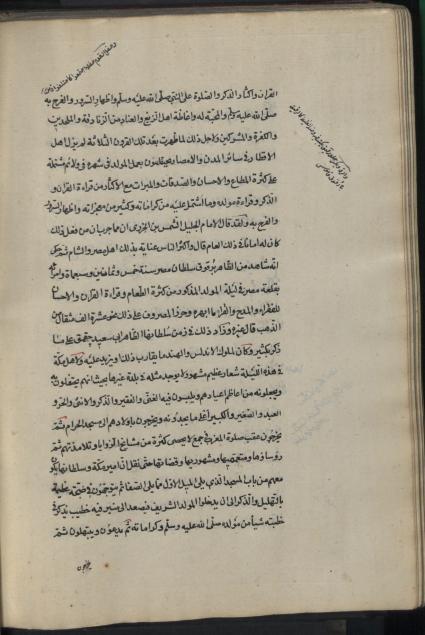 القرآن واكثار الذكر والصلوة على النبي صلى الله عليه وسلم واظهار السرور والفرح به
صلى الله عليه وسلم والمحبة له واغاظة اهل الزيغ والعناد من الزنادقة والملحدين
والكفرة والمشركين ولاجل ذلك لما ظهرت بعد تلك القرون الثلاثة لم يزل اهل
الاقطار في سائر المدن والامصار يحتفلون بعمل المولد في شهره في ولائم مشتملة
على كثرة المطاعم والاحسان والصدقات والمبرات مع الاكثار من قراءة القرآن و
الذكر وقراءة مولده وما اشتمل عليه من كراماته وكثير من معجزاته واظهار السرور
والفرح به ولقد قال الامام الجليل الشمس بن الجزري ان مما جرب ان من فعل ذلك
كان له امانا في ذلك العام قال واكثر الناس عناية بذلك اهل مصر والشام ثم حكى
انه شاهد من الظاهر برقوق سلطان مصر سنة خمس وثمانين وسبعمائة وامرائه
بقلعة مصر في ليلة المولد المذكور من كثرة الطعام وقراءة القرآن والاحسان
للفقراء والمدح والقراء ما ابهره وحزر المصروف على ذلك بنحو عشرة الف مثقال من
الذهب قال غيره وزاد ذلك في زمن سلطانها الظاهر ابي سعيد جقمق على ما
ذكر بكثير وكان لملوك الاندلس والهند ما يقارب ذلك او يزيد عليه ولاهل مكة
في هذه الليلة شعار عظيم مشهود لا يوجد مثله في بلدة غيرها بحيث انهم يحتفلون به
ويجعلونه من اعاظم اعيادهم ويلبسون فيه الغني والفقير والذكر والانثى والحر و
العبد والصغير والكبير اغلى ما يجدونه ويخرجون باولادهم الى مسجد الحرام ثم
يخرجون عقب صلوة المغرب في جمع لا يحصى كثرة من مشايخ الزوايا وتلامذتهم ثم
رؤساؤها ومتعمميها ومشهوريها وقضاتها حتى نقل اذا امير مكة وسلطانها يكون
معهم من باب المسجد الذي يلي الميل الاول مما يلي الصفا ثم يتوجهون في ضجة عظيمة
بالتهليل والذكر الى ان يدخلوا المولد الشريف فيصعد الى منبر فيه خطيب يذكر في
خطبته شيأ من مولده صلى الله عليه وسلم وكراماته ثم يدعون ويبتهلون ثم
يخرجون